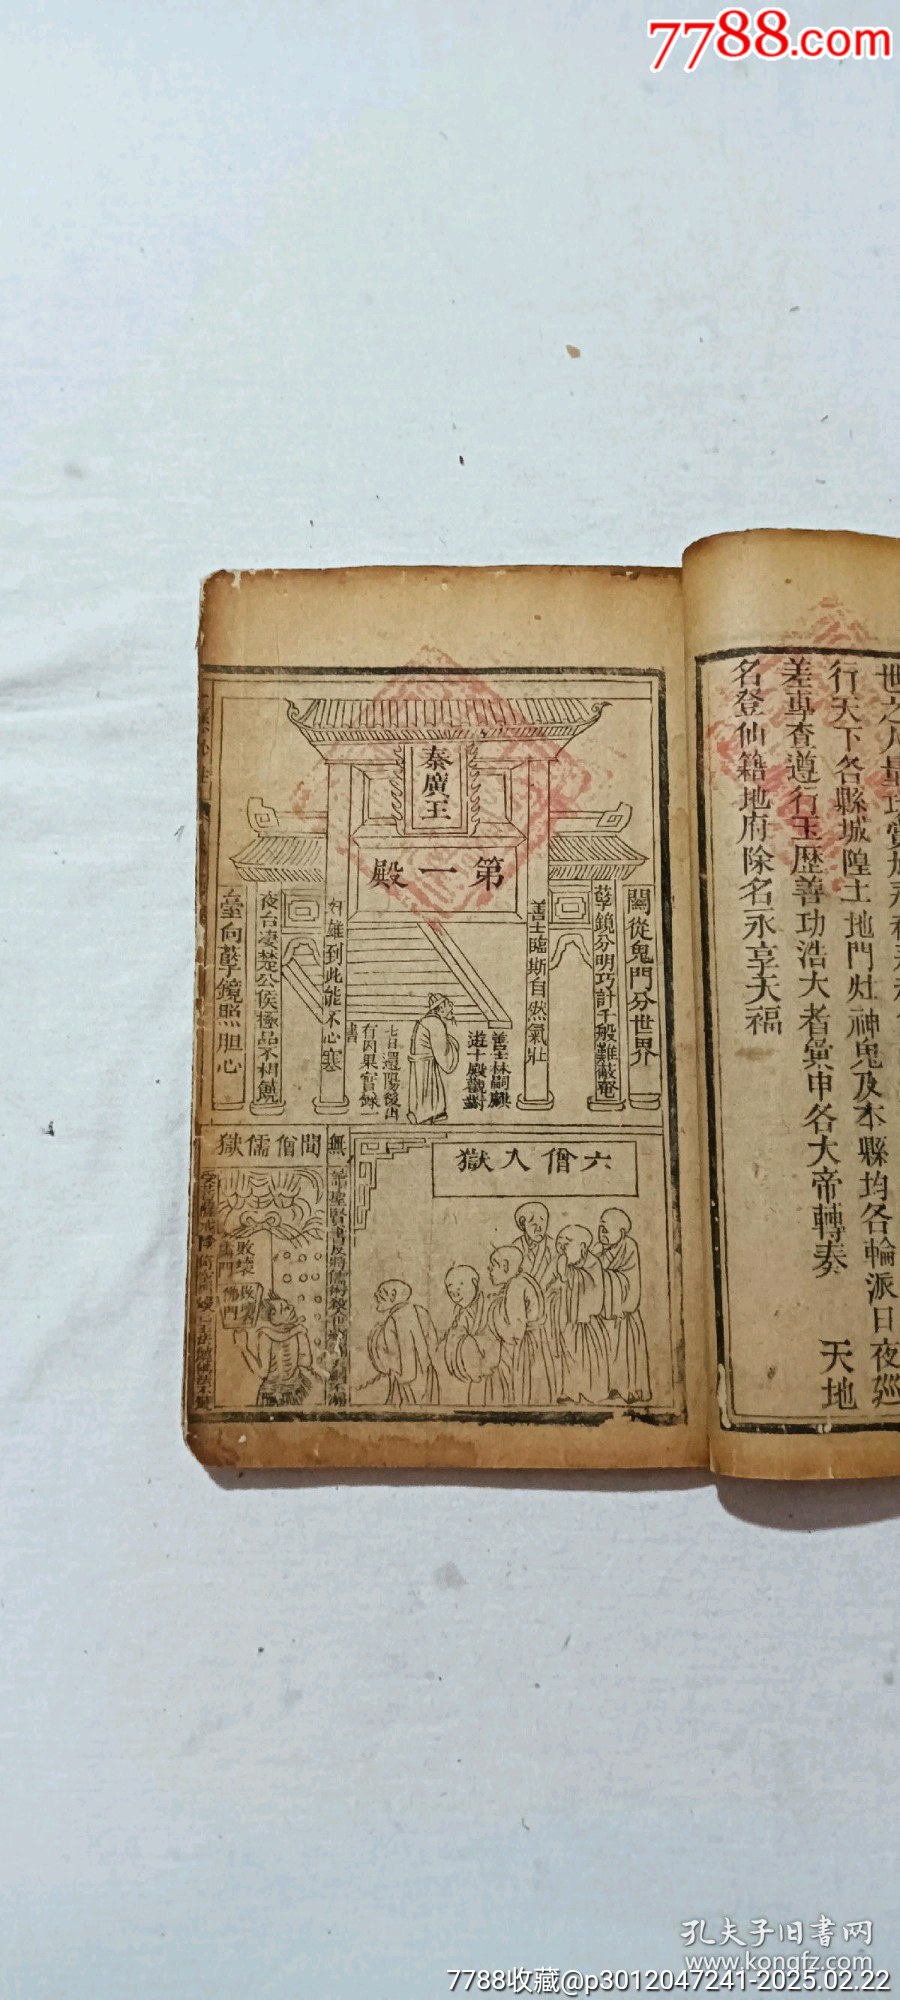 7788.com
行天下各縣城隍土地門灶神鬼及本縣均各輪派日夜廵
差專查遵行玉歷善功浩大者彙申各大帝轉奏　　天地
名登仙籍地府除名永享天福
秦廣王
第一殿
關從鬼門分世界
孽鏡分明巧計千般難蔽奄
善士臨斯自然氣壯
善士林嗣麒
遊十殿觀對
七日還陽後出
有因果實錄一
書
奸雄到此能不心寒
夜台凄楚公侯極品不相饒
臺向孽鏡照胆心
六僧入獄
無間僧儒獄
敗壞
佛門
孔夫子旧书网
www.kongfz.com
7788收藏@p3012047241-2025.02.22